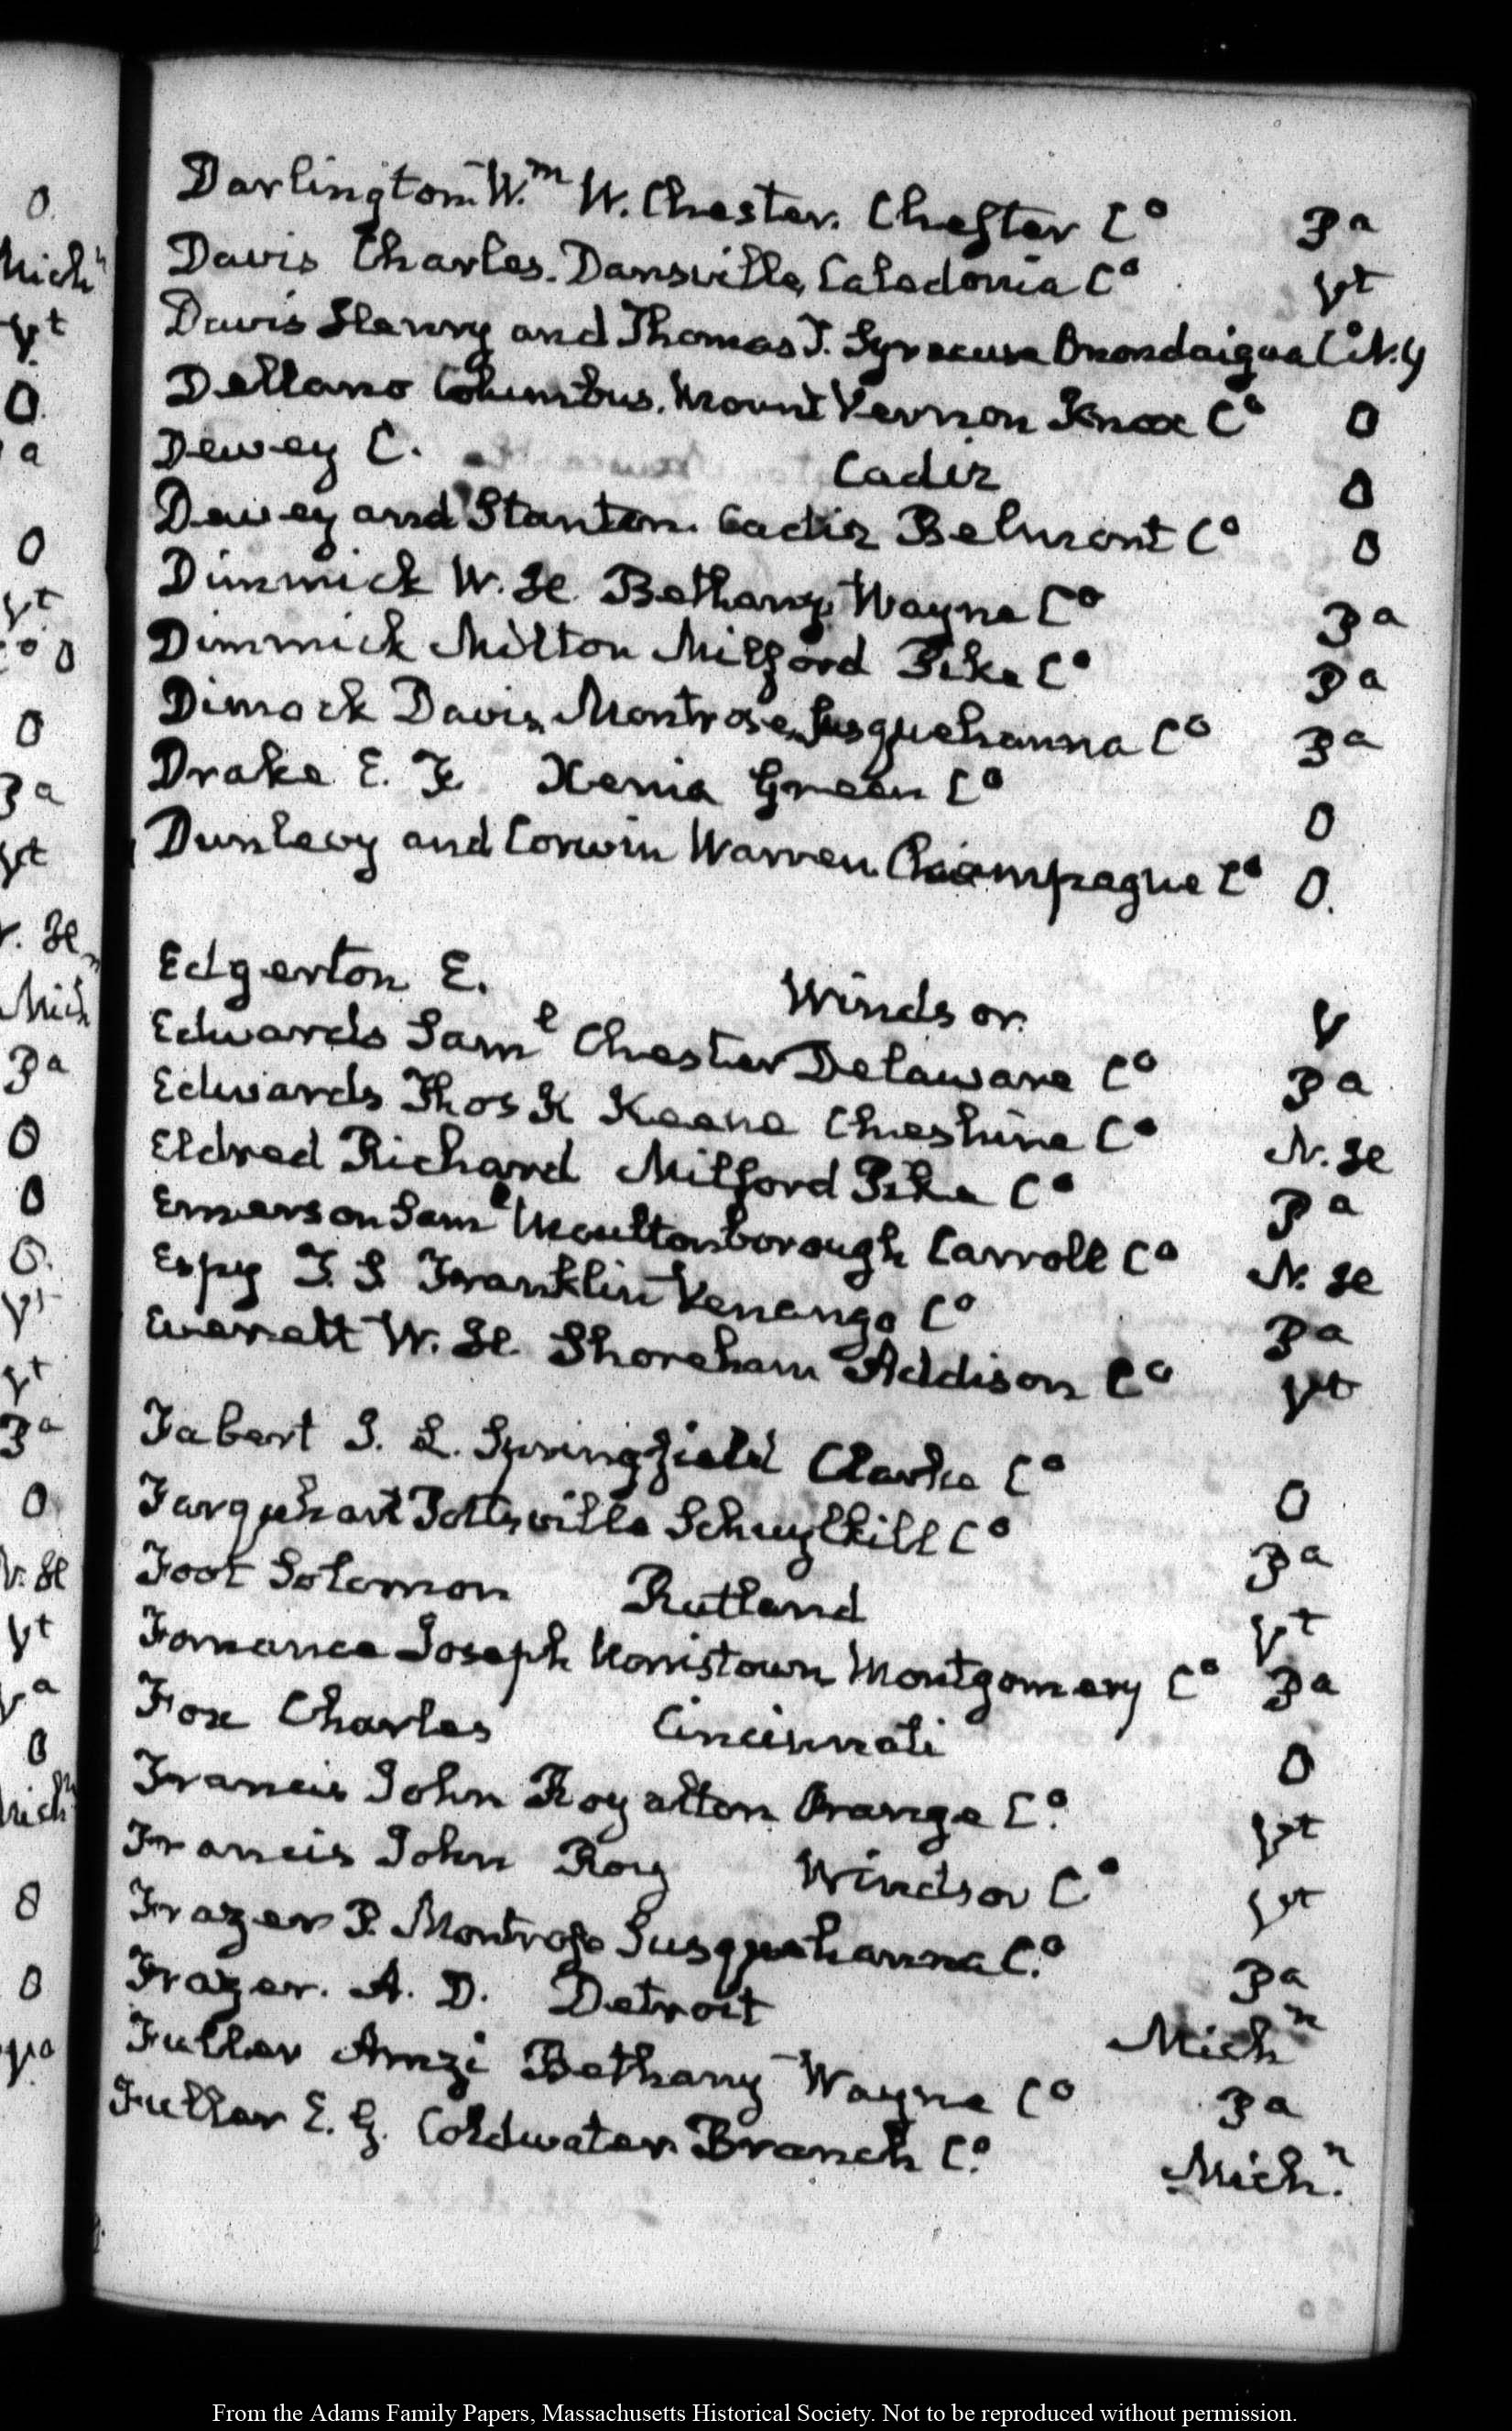 Darlington W.m W. Chester. Chester Co Pa
Davis Charles. Dansville, Caledonia Co Vt
Davis Henry and Thomas T. Syracuse Onondaigua Co N.Y
Dellano Columbus. Mount Vernon Knox Co O
Dewey C. Cadiz O
Dewey and Stanton. Cadiz Belmont Co O
Dimmick W. H. Bethany, Wayne Co Pa
Dimmick Milton Milford Pike Co Pa
Dimock Davis, Montrose, Susquehanna Co Pa
Drake E. F. Xenia Green Co O
Dunlevy and Corwin Warren. Champague Co O.
Edgerton E. Windsor. V
Edwards Saml Chester Delaware Co Pa
Edwards Thos K Keene Cheshire Co N. H
Eldred Richard Milford Pike Co Pa
Emerson Saml Moultonborough Carroll Co N. H
Espy T. S. Franklin Venango Co Pa
Everett W. H. Shoreham Addison Co Vt
Fabert J. L. Springfield Clarke Co O
Farquhart Pottsville Schuylkill Co Pa
Foot Solomon Rutland Vt
Fornance Joseph Norristown Montgomery Co Pa
Fox Charles Cincinnati O
Francis John Royalton Orange Co. Vt
Francis John Roy Windsor Co Vt
Frazer P. Montrose Susquehanna Co. Pa
Frazer. A. D. Detroit Michn
Fuller Amzi Bethany Wayne Co Pa
Fuller E. G. Coldwater Branch Co. Michn.
From the Adams Family Papers, Massachusetts Historical Society. Not to be reproduced without permission.